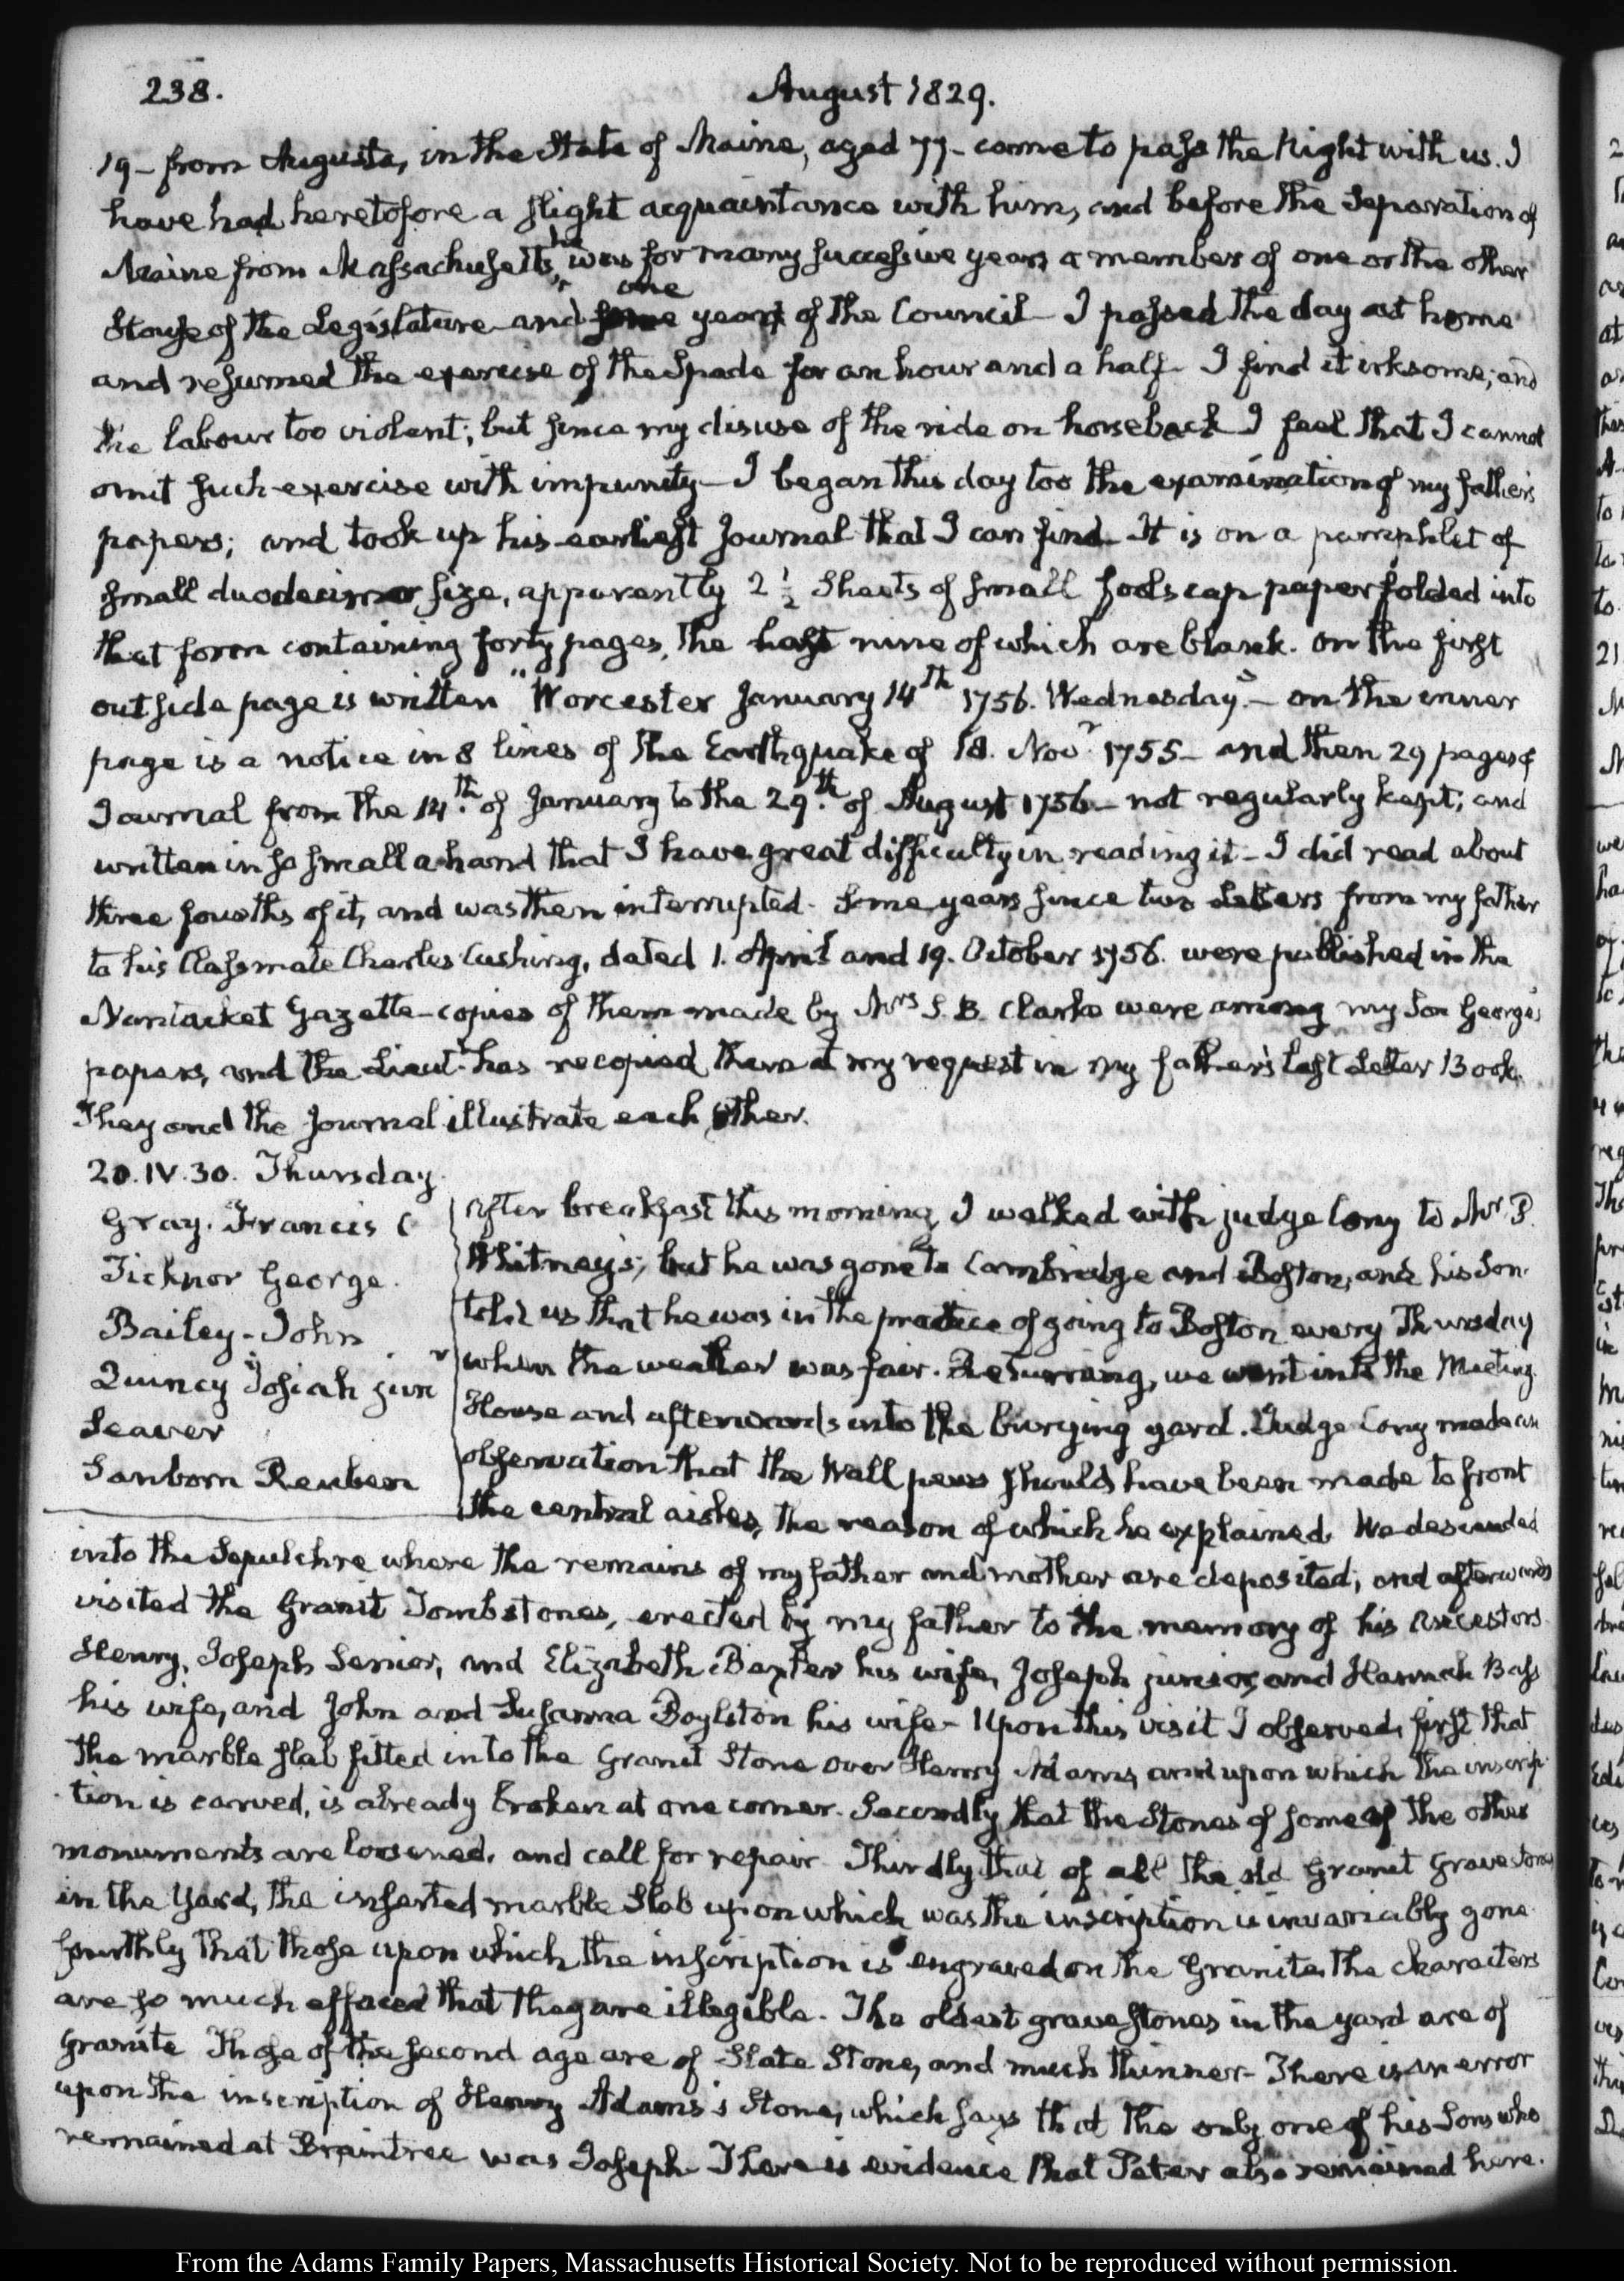 238.
August 1829.
19 - from Augusta, in the State of Maine, aged 77 - came to pass the Night with us. I
have had heretofore a slight acquaintance with him, and before the Separation of
Maine from Massachusetts, he was for many successive years a member of one or the other
House of the Legislature and one year of the Council - I passed the day at home
and resumed the exercise of the Spade for an hour and a half - I find it irksome; and
the labour too violent; but since my disuse of the ride on horseback I feel that I cannot
omit such exercise with impunity - I began this day too the examination of my father's
papers; and took up his earliest Journal that I can find - It is on a pamphlet of
small duodecimo size, apparently 2 1/2 Sheets of small foolscap paper folded into
that form containing forty pages, the last nine of which are blank. On the first
outside page is written "Worcester January 14th 1756. Wednesday" - on the inner
page is a notice in 8 lines of the Earthquake of 18. Novr 1755 - and then 29 pages of
Journal from the 14th of January to the 29th of August 1756 - not regularly kept; and
written in so small a hand that I have great difficulty in reading it - I did read about
three fourths of it, and was then interrupted. Some years since two Letters from my father
to his Classmate Charles Cushing, dated 1. April and 19. October 1756. were published in the
Nantucket Gazette - copies of them made by Mrs S. B. Clarke were among my Son George's
papers, and the Lieutt has recopied them at my request in my father's last Letter Book.
They and the Journal illustrate each other.
20. IV. 30. Thursday.
Gray. Francis C
Ticknor George.
Bailey - John
Quincy Josiah junr
Seaver
Sanborn Reuben
After breakfast this morning, I walked with judge Cony to Mr P.
Whitney's; but he was gone to Cambridge and Boston, and his Son
told us that he was in the practice of going to Boston every Thursday
when the weather was fair. Returning, we went into the Meeting
House and afterwards into the burying yard. Judge Cony made an
observation that the Wall pews should have been made to front
the central aisles, the reason of which he explained. We descended
into the Sepulchre where the remains of my father and mother are deposited; and afterwards
visited the Granit Tombstones, erected by my father to the memory of his Ancestors
Henry, Joseph Senior, and Elizabeth Baxter his wife, Joseph junior, and Hannah Bass
his wife, and John and Susanna Boylston his wife - Upon this visit I observed, first that
the marble slab fitted into the Granit Stone over Henry Adams, and upon which the inscrip-
tion is carved, is already broken at one corner. Secondly that the Stones of some of the other
monuments are loosened, and call for repair. Thirdly that of all the old Granit Gravestones
in the Yard, the inserted marble Slab upon which was the inscription is invariably gone.
fourthly that those upon which the inscription is engraved on the Granite, the characters
are so much effaced that they are illegible. The oldest gravestones in the yard are of
Granite Those of the second age are of Slate Stone, and much thinner - There is an error
upon the inscription of Henry Adams's Stone, which says that the only one of his Sons who
remained at Braintree was Joseph There is evidence that Peter also remained here.
From the Adams Family Papers, Massachusetts Historical Society. Not to be reproduced without permission.